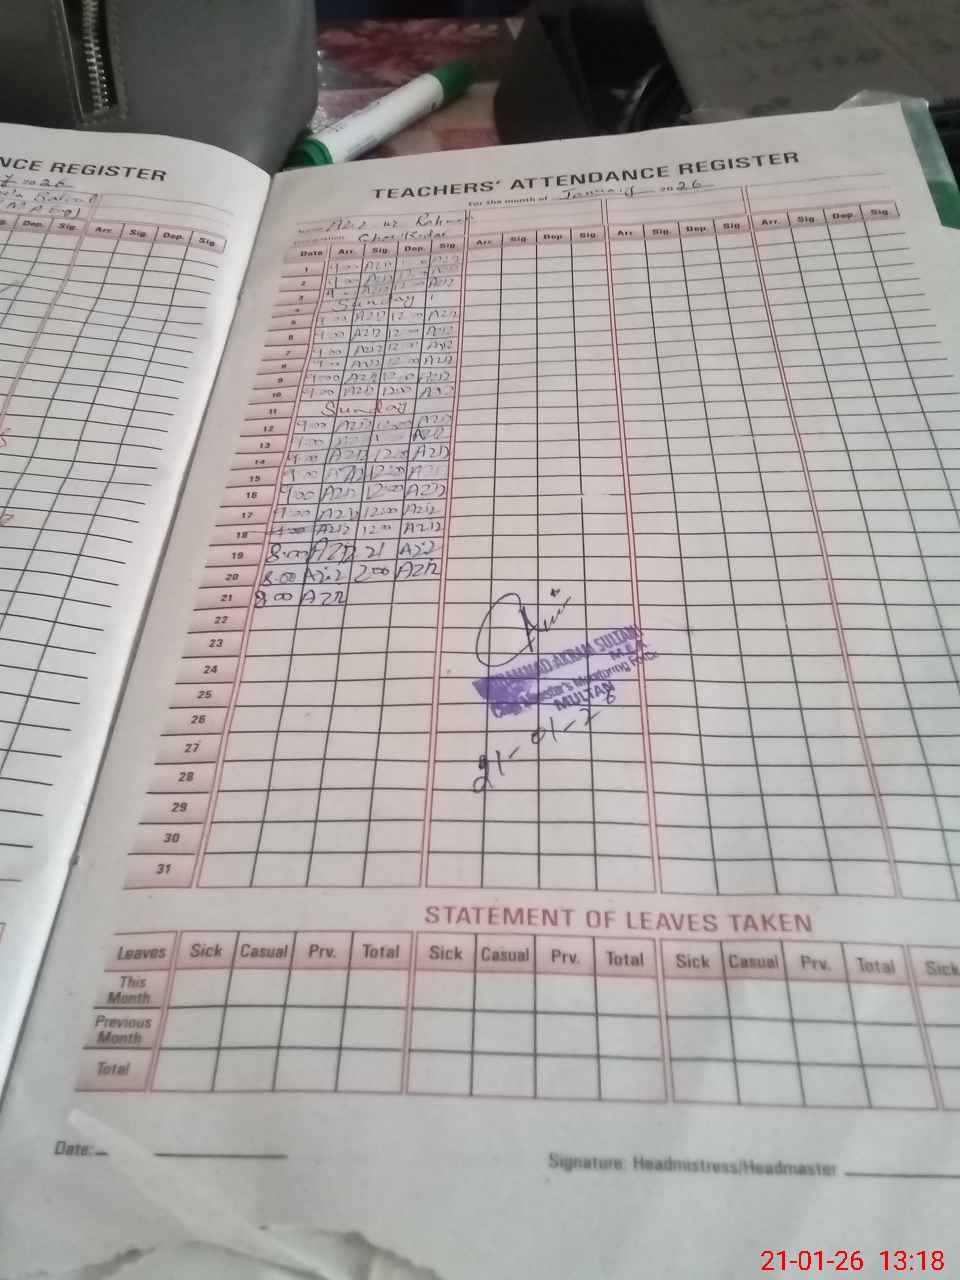 NCE REGISTER
2026
Dep. Sig. Arr. Sig. Dep. Sig.
TEACHERS' ATTENDANCE REGISTER
For the month of January 2026
Aziz ur Rehman
Date Arr. Sig. Dep. Sig. Arr. Sig. Dep. Sig. Arr. Sig. Dep. Sig. Arr. Sig. Dep. Sig.
1 9:00 Aziz Aziz
2 9:00 Aziz 12:00 Aziz
3 Aziz 12:00 Aziz
4 Sunday
5 9:00 Aziz 12:00 Aziz
6 9:00 Aziz 12:00 Aziz
7 9:00 Aziz 12:00 Aziz
8 9:00 Aziz 12:00 Aziz
9 9:00 Aziz 12:00 Aziz
10 9:00 Aziz 12:00 Aziz
11 Sunday
12 9:00 Aziz 12:00 Aziz
13 9:00 Aziz
14 9:00 Aziz 12:00 Aziz
15 9:00 Aziz 12:00 Aziz
16 9:00 Aziz 12:00 Aziz
17 9:00 Aziz 12:00 Aziz
18 Aziz 12:00 Aziz
19 8:00 Aziz 21 Aziz
20 8:00 Aziz 2:00 Aziz
21 8:00 Aziz
22
23
24
25
26
27
28
29
30
31
MUHAMMAD AKRAM SULTAN
M.E.A.
Chief Minister's Monitoring Force
MULTAN
21-01-26
STATEMENT OF LEAVES TAKEN
Leaves Sick Casual Prv. Total Sick Casual Prv. Total Sick Casual Prv. Total Sick
This Month
Previous Month
Total
Date:
Signature: Headmistress/Headmaster
21-01-26 13:18